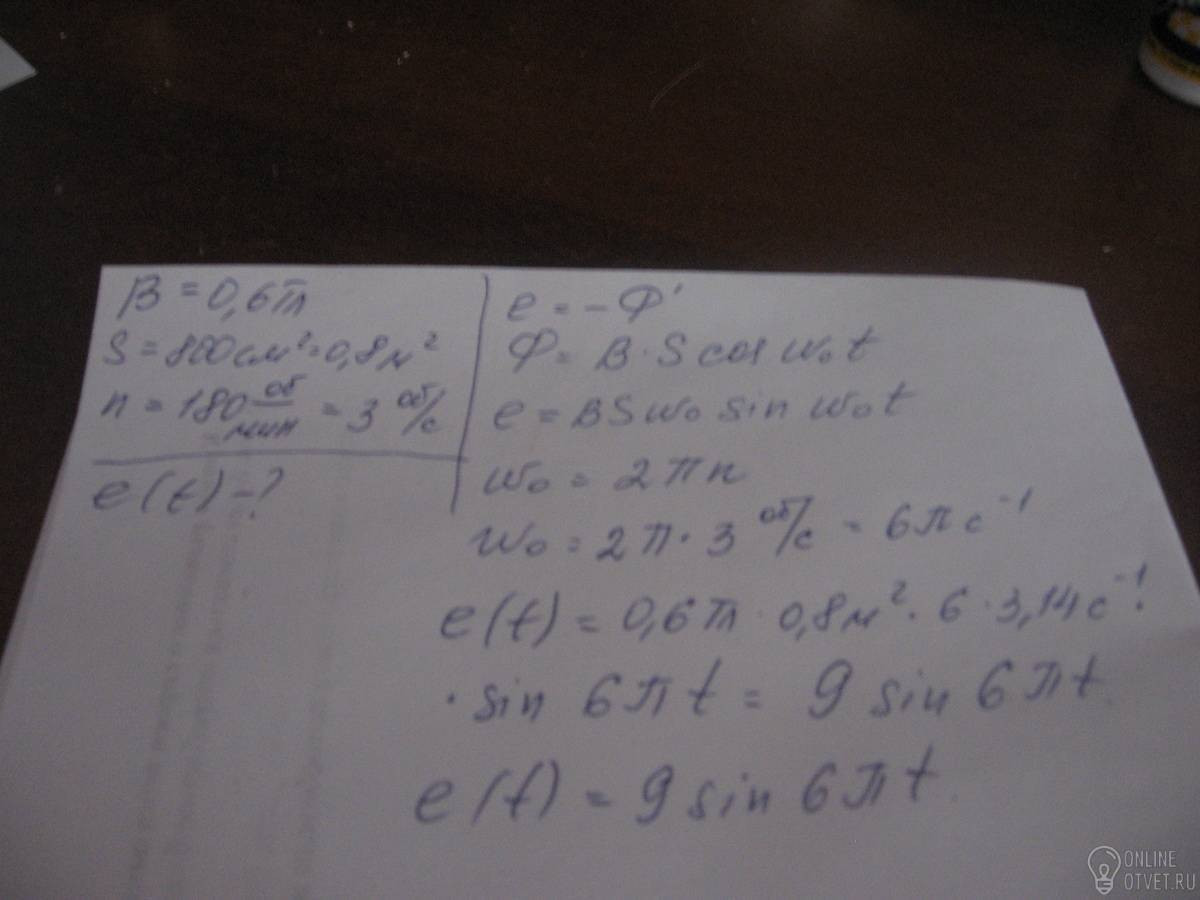 B = 0,6 Тл
S = 800 см² = 0,8 м²
n = 180 об/мин = 3 об/с
e(t) - ?
e = -Ф'
Ф = B · S cos w₀t
e = BSw₀ sin w₀t
w₀ = 2πn
w₀ = 2π · 3 об/с = 6π с⁻¹
e(t) = 0,6 Тл · 0,8 м² · 6 · 3,14 с⁻¹ ·
· sin 6πt = 9 sin 6πt
e(t) = 9 sin 6πt
ONLINE
OTVET.RU